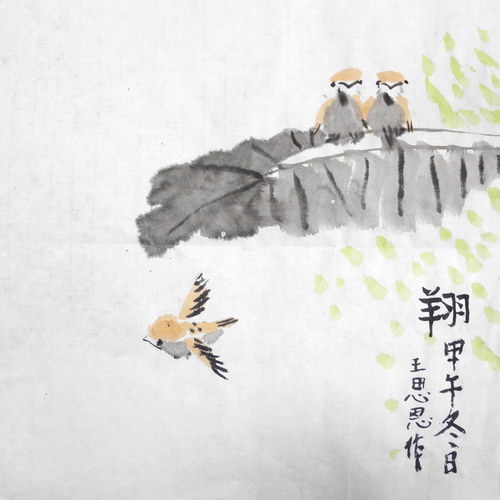 翔甲午冬日
王思思作